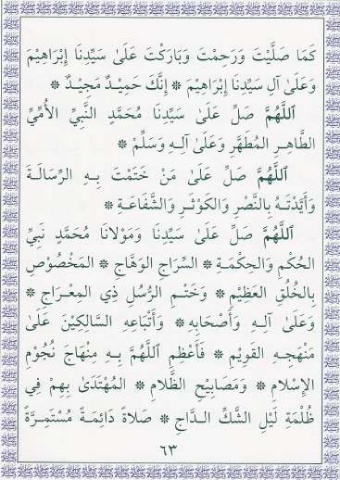 كَمَا صَلَّيْتَ وَرَحِمْتَ وَبَارَكْتَ عَلَىٰ سَيِّدِنَا إِبْرَاهِيْمَ
وَعَلَىٰ آلِ سَيِّدِنَا إِبْرَاهِيْمَ ❁ إِنَّكَ حَمِيْدٌ مَجِيْدٌ ❁
اَللَّهُمَّ صَلِّ عَلَىٰ سَيِّدِنَا مُحَمَّدٍ النَّبِيِّ الأُمِّيِّ
الطَّاهِرِ المُطَهَّرِ وَعَلَىٰ آلِهِ وَسَلِّمْ ❁
اَللَّهُمَّ صَلِّ عَلَىٰ مَنْ خَتَمْتَ بِهِ الرِّسَالَةَ
وَأَيَّدْتَهُ بِالنَّصْرِ وَالكَوْثَرِ وَالشَّفَاعَةِ ❁
اَللَّهُمَّ صَلِّ عَلَىٰ سَيِّدِنَا وَمَوْلَانَا مُحَمَّدٍ نَبِيِّ
الحُكْمِ وَالحِكْمَةِ ❁ السِّرَاجِ الوَهَّاجِ ❁ المَخْصُوْصِ
بِالخُلُقِ العَظِيْمِ ❁ وَخَتْمِ الرُّسُلِ ذِي المِعْرَاجِ ❁
وَعَلَىٰ آلِهِ وَأَصْحَابِهِ ❁ وَأَتْبَاعِهِ السَّالِكِيْنَ عَلَىٰ
مَنْهَجِهِ القَوِيْمِ ❁ فَأَعْظِمِ اللَّهُمَّ بِهِ مِنْهَاجَ نُجُوْمِ
الإِسْلَامِ ❁ وَمَصَابِيْحِ الظَّلَامِ ❁ المُهْتَدَىٰ بِهِمْ فِي
ظُلْمَةِ لَيْلِ الشَّكِّ الدَّاجِ ❁ صَلَاةً دَائِمَةً مُسْتَمِرَّةً
٦٣